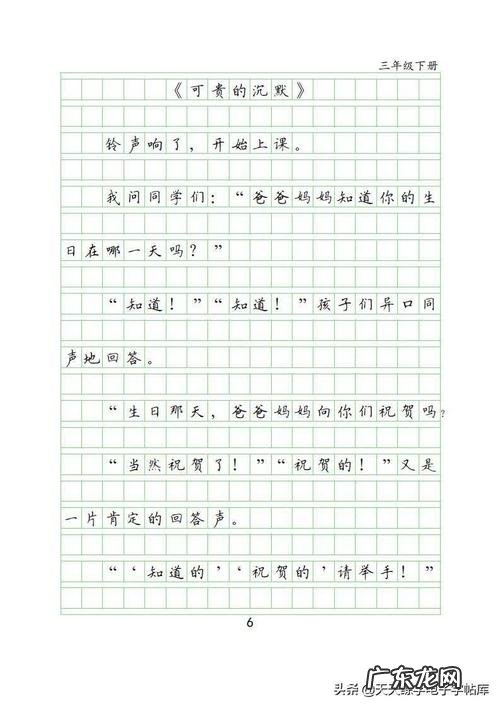 三年级下册
《可贵的沉默》
铃声响了，开始上课。
我问同学们：“爸爸妈妈知道你的生
日在哪一天吗？”
“知道！”“知道！”孩子们异口同
声地回答。
“生日那天，爸爸妈妈向你们祝贺吗？
“当然祝贺了！”“祝贺的！”又是
一片肯定的回答声。
“‘知道的’‘祝贺的’请举手！”
6
广东龙网
头条@天天练字电子字帖库